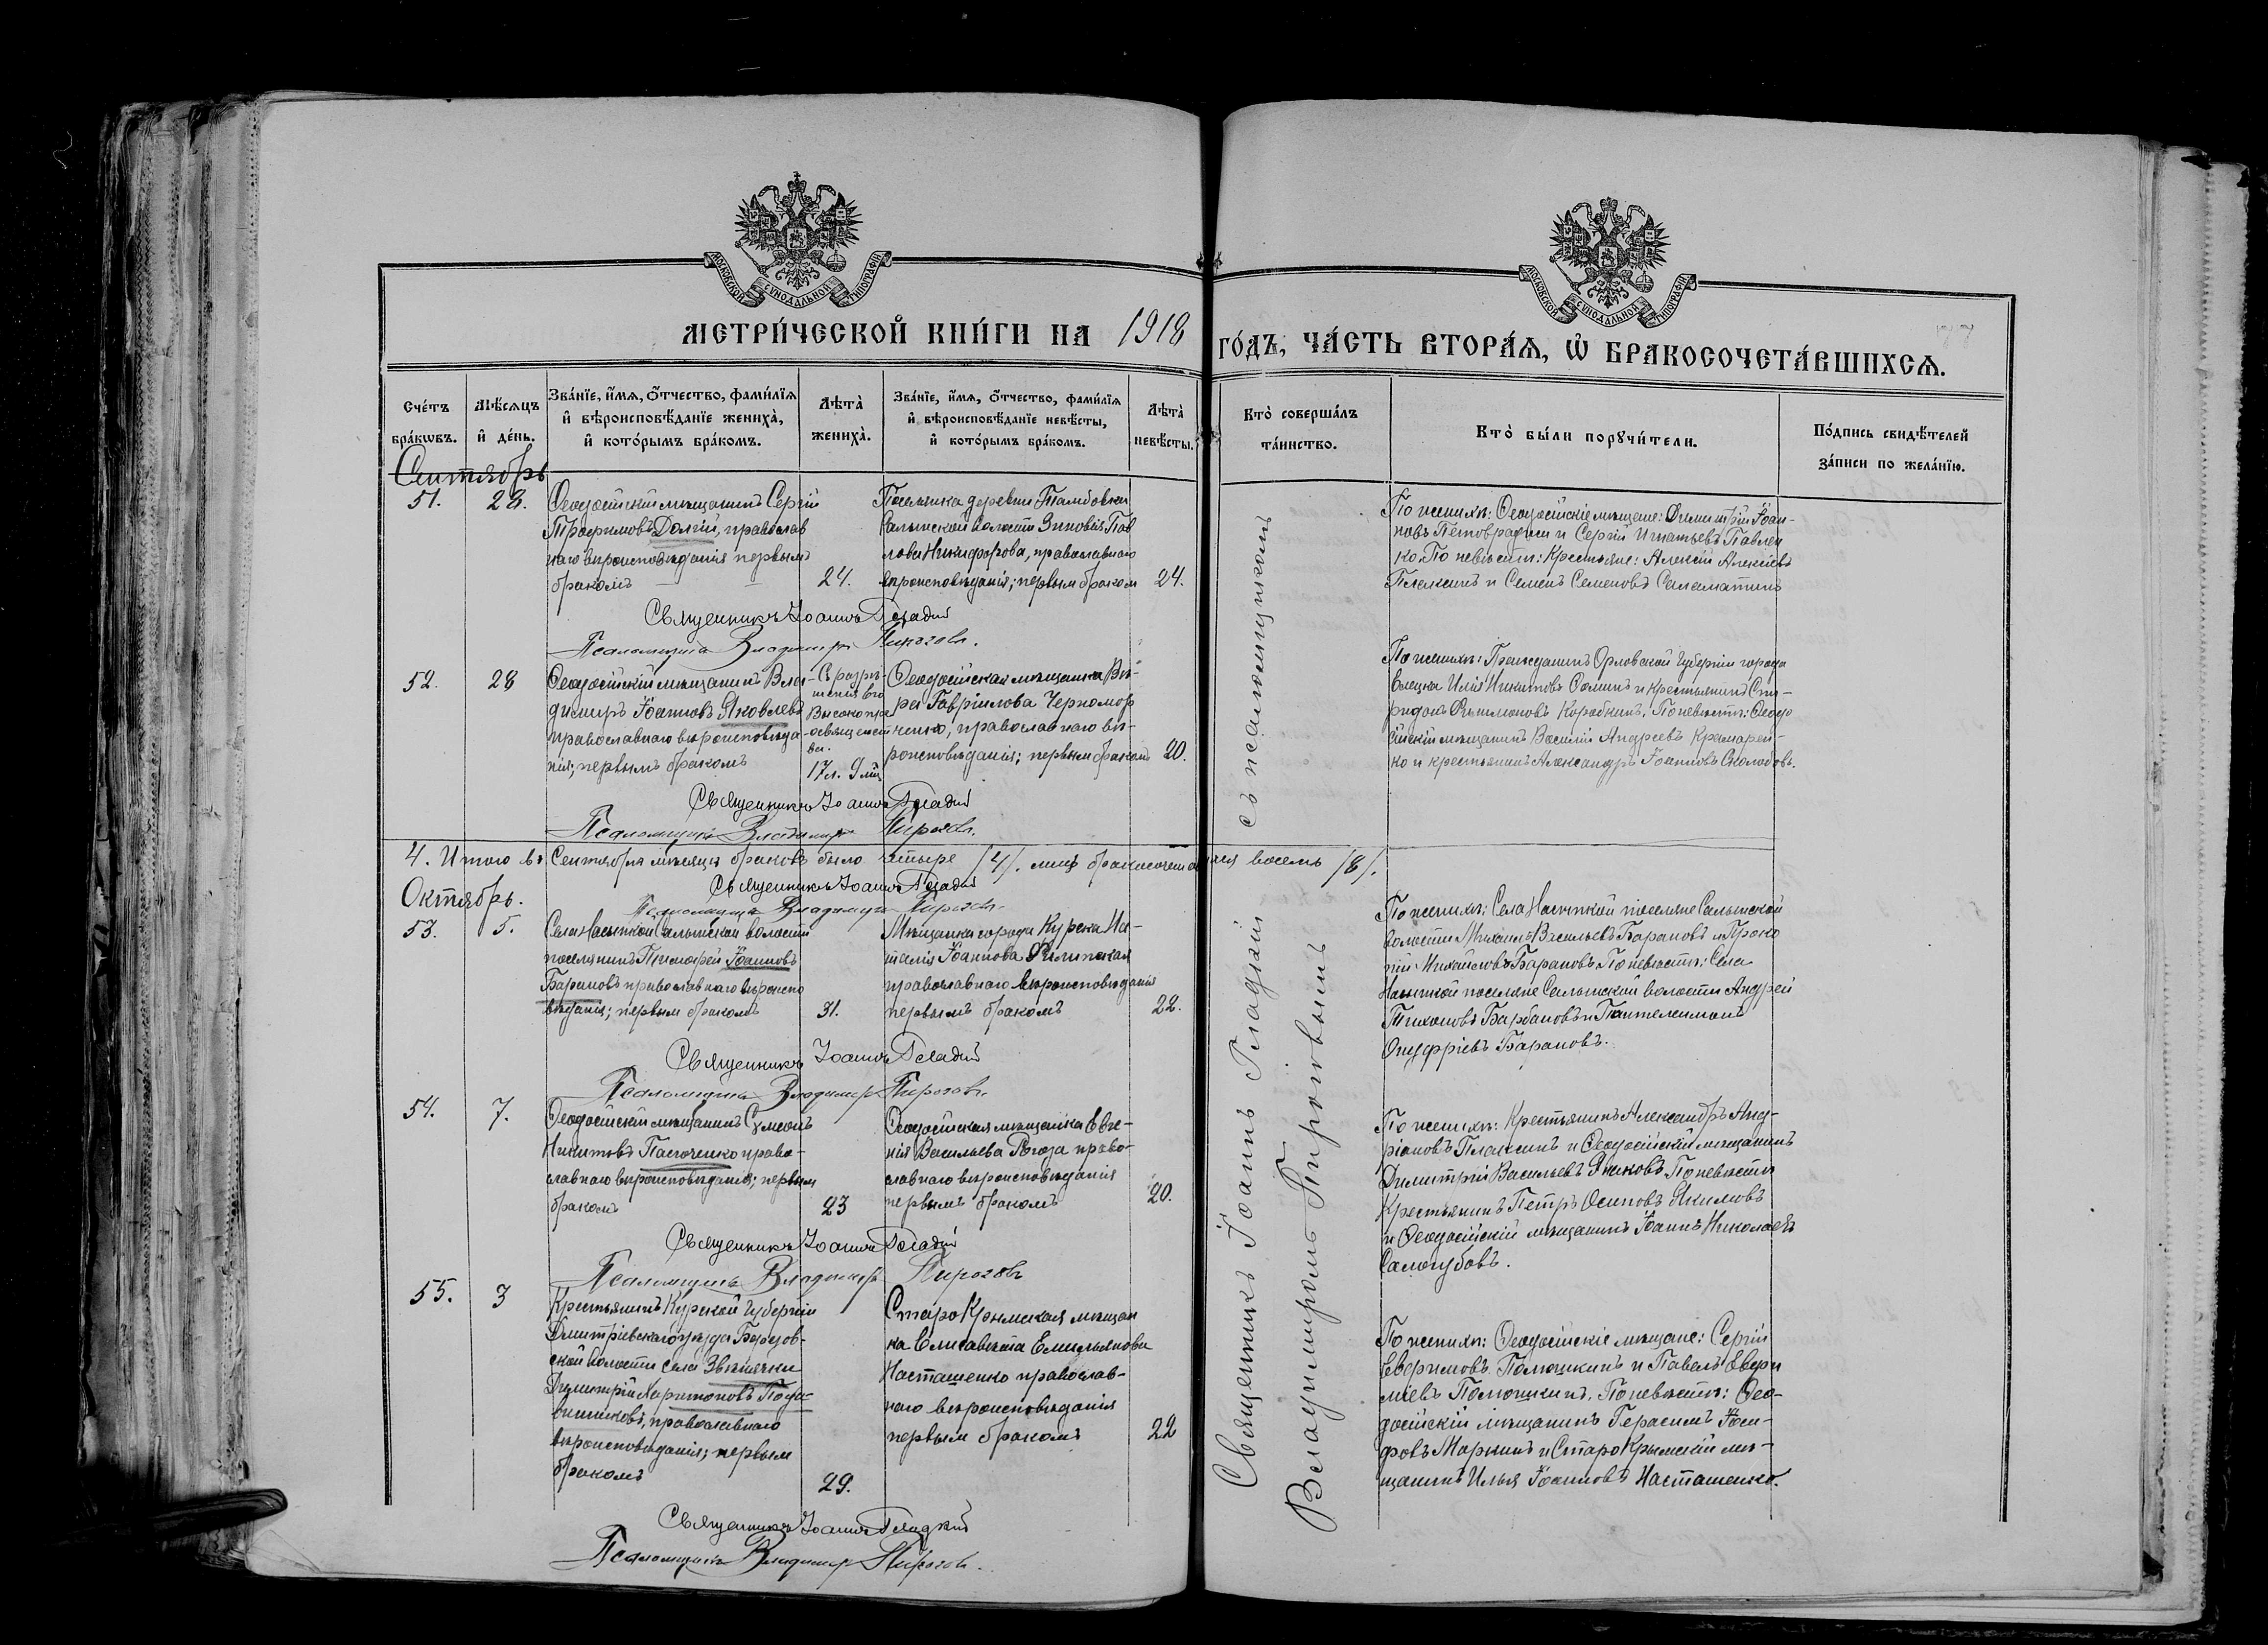 МОСКОВСКОЙ СѴНОДАЛЬНОЙ ТИПОГРАФІИ
МОСКОВСКОЙ СѴНОДАЛЬНОЙ ТИПОГРАФІИ
МЕТРИ́ЧЕСКОЙ КНИ́ГИ НА 1918 ГО́ДЪ, ЧА́СТЬ ВТОРА́Ѧ, Ѡ҆ БРАКОСОЧЕТА́ВШИХСѦ.
Сче́тъ бра́кѡвъ.
Мѣ́сяцъ и҆ де́нь.
Зва́нїе, и҆́мѧ, о҆́тчество, фами́лїѧ
и҆ вѣроисповѣ́данїе жениха̀,
и҆ кото́рымъ бра́комъ.
Лѣта̀ жениха̀.
Зва́нїе, и҆́мѧ, о҆́тчество, фами́лїѧ
и҆ вѣроисповѣ́данїе невѣ́сты,
и҆ кото́рымъ бра́комъ.
Лѣта̀ невѣ́сты.
Кто̀ соверша́лъ
та́инство.
Кто̀ бы́ли порꙋчи́тели.
По́дпись свидѣ́телей
за́писи по жела́нїю.
Сентябрь
51. 28.
Ѳеодосійскій мѣщанинъ Сергій
Трофимовъ Долгій, православ
наго вѣроисповѣданія первымъ
бракомъ
24.
Поселянка деревни Тамбовки
Салынской волости Зиновія Пав
лова Никифорова, православнаго
вѣроисповѣданія; первым браком
24.
По женихѣ: Ѳеодосійскіе мѣщане: Димитрій Іоан-
новъ и Сергій Игнатьевъ Павлен
ко. По невѣстѣ: Крестьяне: Алексій Алексіевъ
и Семенъ Семеновъ
Священникъ Іоаннъ Гладкій
Псаломщикъ Владимиръ Пироговъ.
52. 28
Ѳеодосійскій мѣщанинъ Вла-
димиръ Іоанновъ Яковлевъ
православнаго вѣроисповѣда
нія; первымъ бракомъ
Съ разрѣ-
шенія Его
Высокопре
освященст
ва.
17 л. 9 мѣц
Ѳеодосійская мѣщанка Вѣ-
ра Гавріилова Черномор
ченко, православнаго вѣ-
роисповѣданія; первым бракомъ
20.
По женихѣ: Гражданинъ Орловской Губерніи города
Ельца Илія Никитовъ Ѳоминъ и крестьянинъ Спи-
ридонъ Коробкинъ. По невѣстѣ: Ѳеодо
сійскій мѣщанинъ Василій Андреевъ Крамарен-
ко и крестьянинъ Александръ Іоанновъ Сколобовъ.
Священникъ Іоаннъ Гладкій
Псаломщикъ Владимиръ Пироговъ.
4. Итого въ Сентябрѣ мѣсяцѣ браковъ было четыре /4/. лицъ бракосочетавшихся восемь /8/.
Священникъ Іоаннъ Гладкій
Псаломщикъ Владимиръ Пироговъ.
Октябрь.
53. 5.
Села Насыпкой Салынской волости
поселянинъ Тимофей Іоанновъ
Барановъ православнаго вѣроиспо
вѣданія; первым бракомъ
31.
Мѣщанка города Курска На-
талія Іоаннова Филипская
православнаго вѣроисповѣданія
первымъ бракомъ
22.
По женихѣ: Села Насыпкой поселяне Салынской
волости Михаилъ Васильевъ Барановъ и Проко
пій Михайловъ Барановъ. По невѣстѣ: Села
Насыпкой поселяне Салынской волости Андрей
Тихоновъ Барбановъ и Пантелеимонъ
Онуфріевъ Барановъ.
Священникъ Іоаннъ Гладкій
Псаломщикъ Владимиръ Пироговъ.
54. 7.
Ѳеодосійскій мѣщанинъ Сумеонъ
Никитовъ Пасюченко право-
славнаго вѣроисповѣданія; первым
бракомъ
23
Ѳеодосійская мѣщанка Евге-
нія Васильева Рогоза право-
славнаго вѣроисповѣданія
первымъ бракомъ
20.
По женихѣ: Крестьянинъ Александръ Анд-
ріановъ Плаксинъ и Ѳеодосійскій мѣщанинъ
Димитрій Васильевъ По невѣстѣ
Крестьянинъ Петръ Осиповъ Якимовъ
и Ѳеодосійскій мѣщанинъ Іоаннъ Николаевъ
Самогубовъ.
Священникъ Іоаннъ Гладкій
Псаломщикъ Владимиръ Пироговъ
55. 3
Крестьянинъ Курской Губерніи
Дмитріевскаго уѣзда Березов-
ской волости села Звѣнячки
Димитрій Харитоновъ
православнаго
вѣроисповѣданія; первым
бракомъ
29.
Старо Крымская мѣщан
ка Елисавета Емельянова
Насташенко православ-
наго вѣроисповѣданія
первым бракомъ
22
По женихѣ: Ѳеодосійскіе мѣщане: Сергій
Помошкинъ и Павелъ
Помошкинъ. По невѣстѣ: Ѳео-
досійскій мѣщанинъ Герасимъ Іоси-
фовъ Маркинъ и Старо Крымскій мѣ-
щанинъ Илья Іоанновъ Насташенко.
Священникъ Іоаннъ Гладкій
Псаломщикъ Владимиръ Пироговъ.
Священникъ Іоаннъ Гладкій съ псаломщикомъ
Владимиромъ Пироговымъ